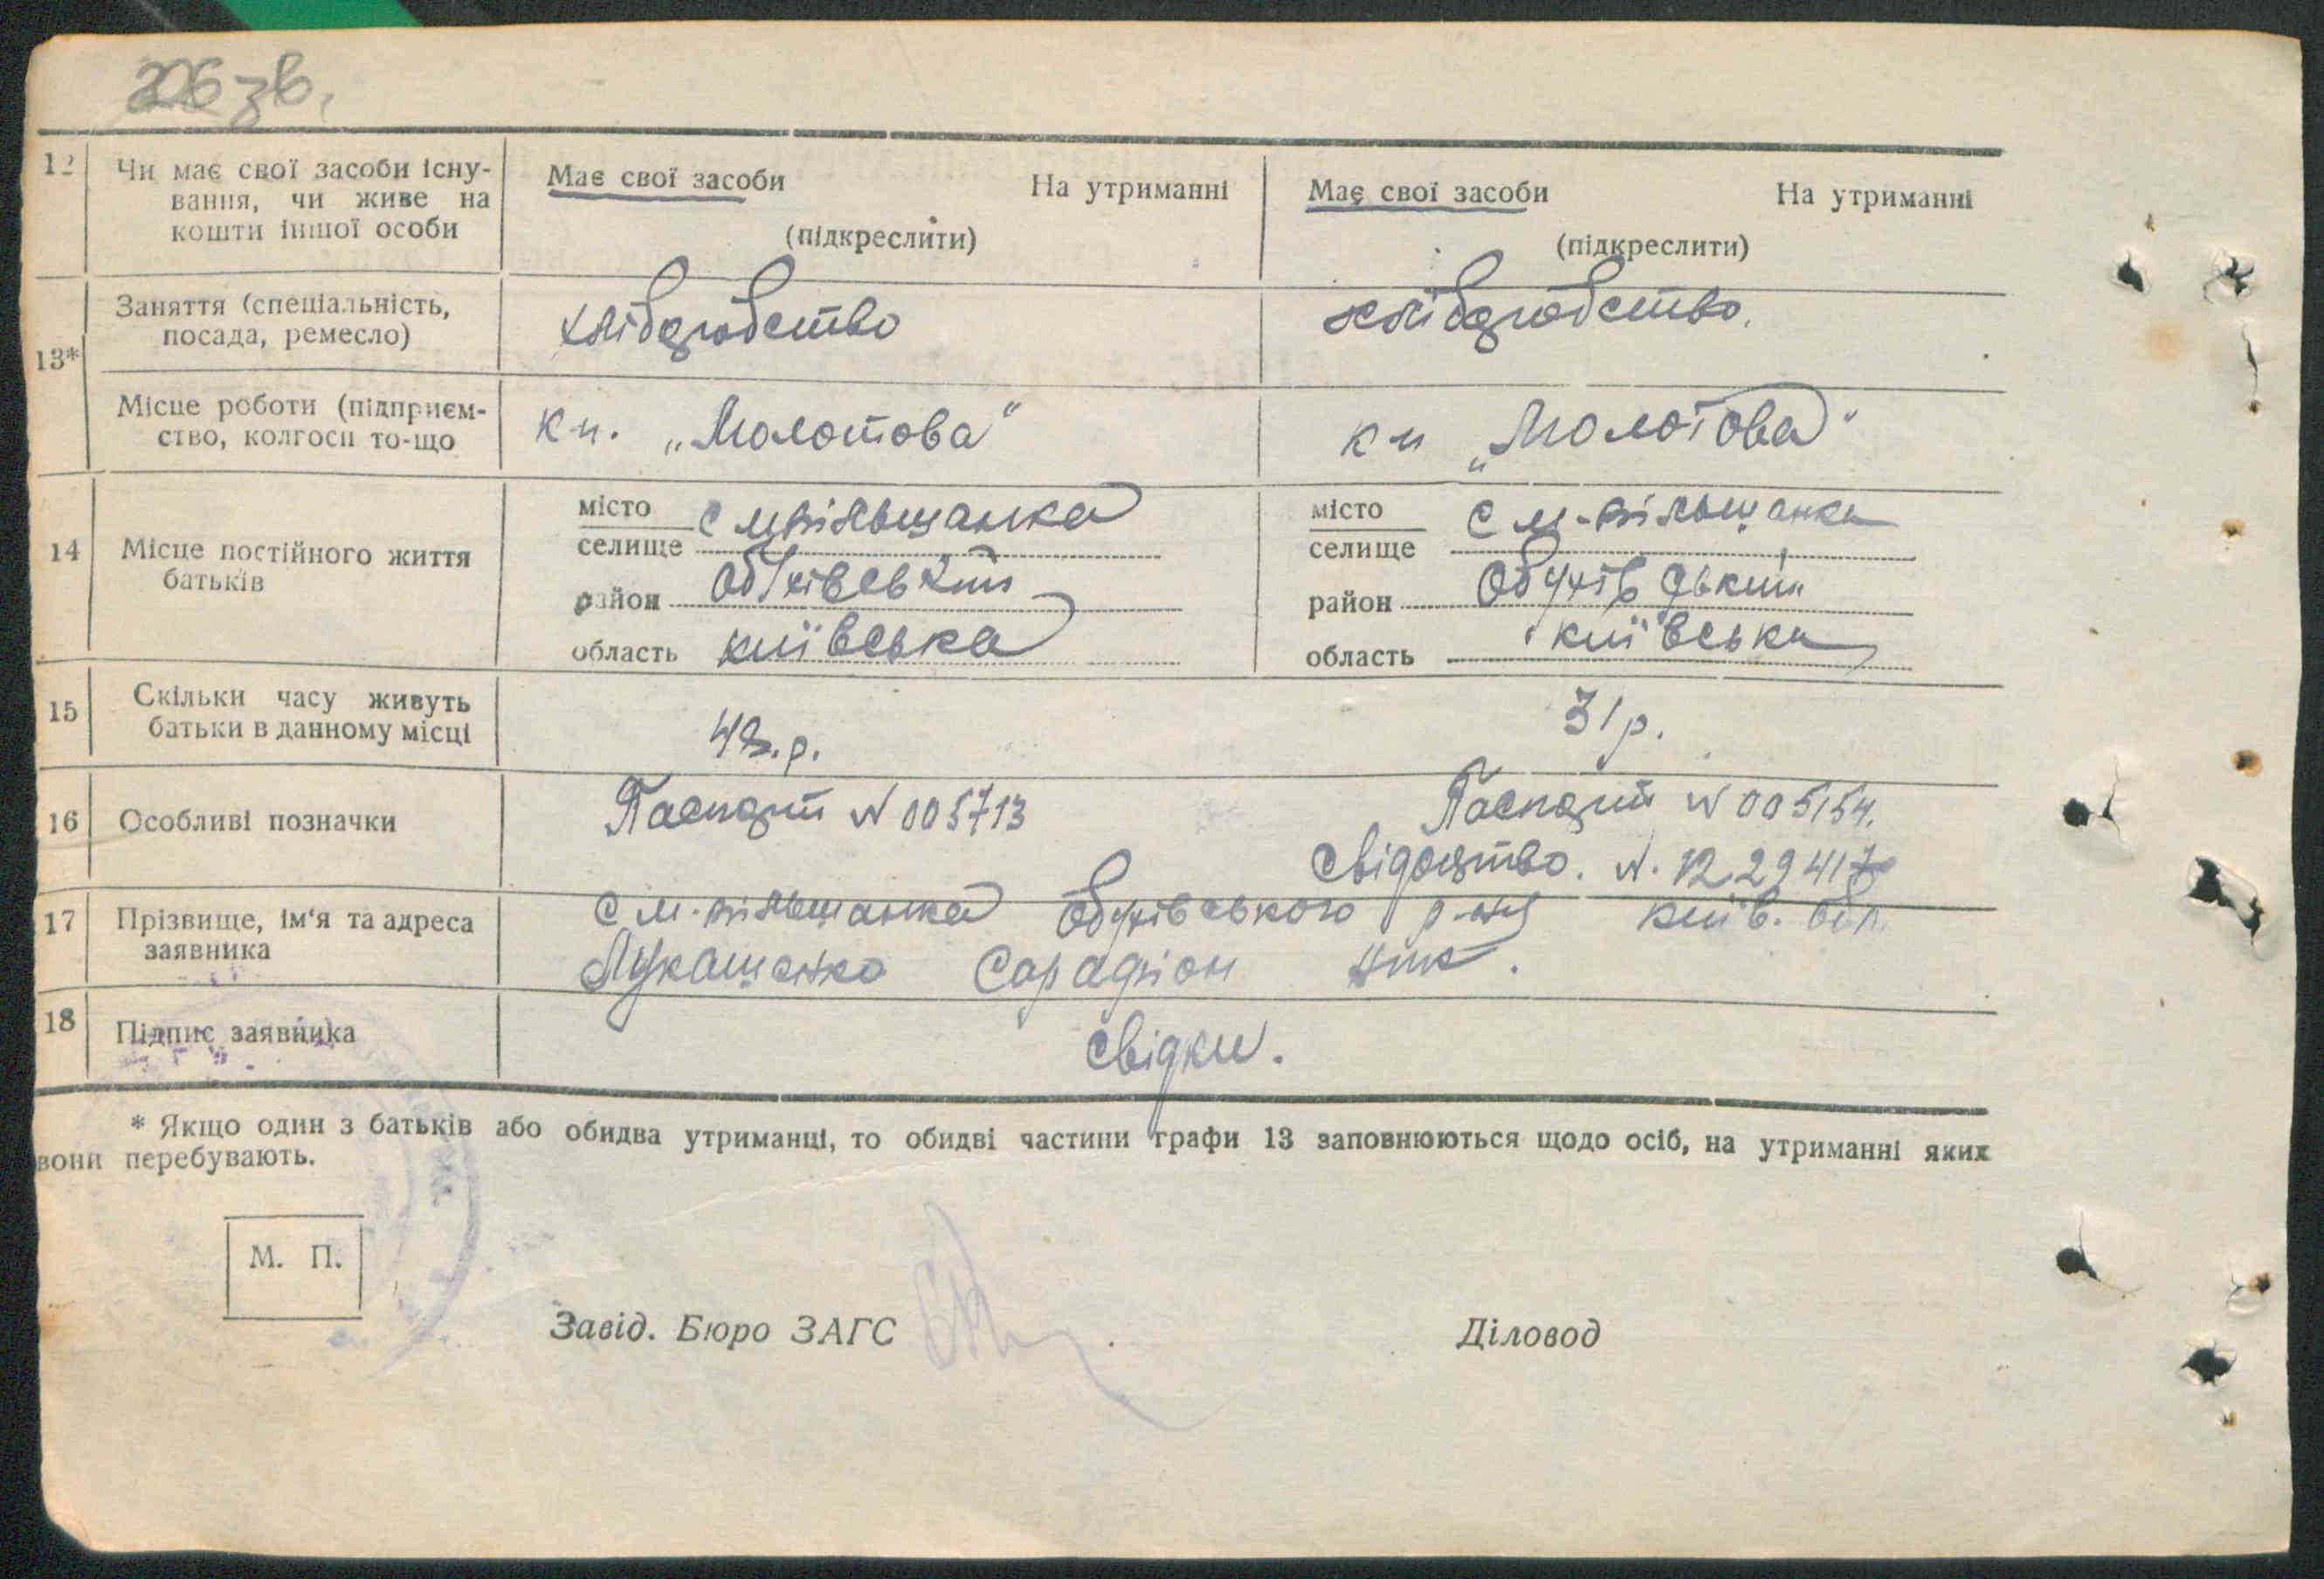 206 зв.
12 Чи має свої засоби існу-
вання, чи живе на
кошти іншої особи
Має свої засоби На утриманні
(підкреслити)
Має свої засоби На утриманні
(підкреслити)
13*
Заняття (спеціальність,
посада, ремесло)
хліборобство
хліборобство.
Місце роботи (підприєм-
ство, колгосп то-що
"Молотова"
"Молотова"
14 Місце постійного життя
батьків
місто
селище
район Обухівський
область київська
місто
селище
район Обухівський
область київська
15 Скільки часу живуть
батьки в данному місці
31 р.
16 Особливі позначки
Паспорт N 005713
Паспорт N 005154.
Свідоцтво. N.
17 Прізвище, ім'я та адреса
заявника
Обухівського р-ну київ. обл.
Лукашенко
18 Підпис заявника
свідки.
* Якщо один з батьків або обидва утриманці, то обидві частини графи 13 заповнюються щодо осіб, на утриманні яких
вони перебувають.
М. П.
Завід. Бюро ЗАГС
Діловод